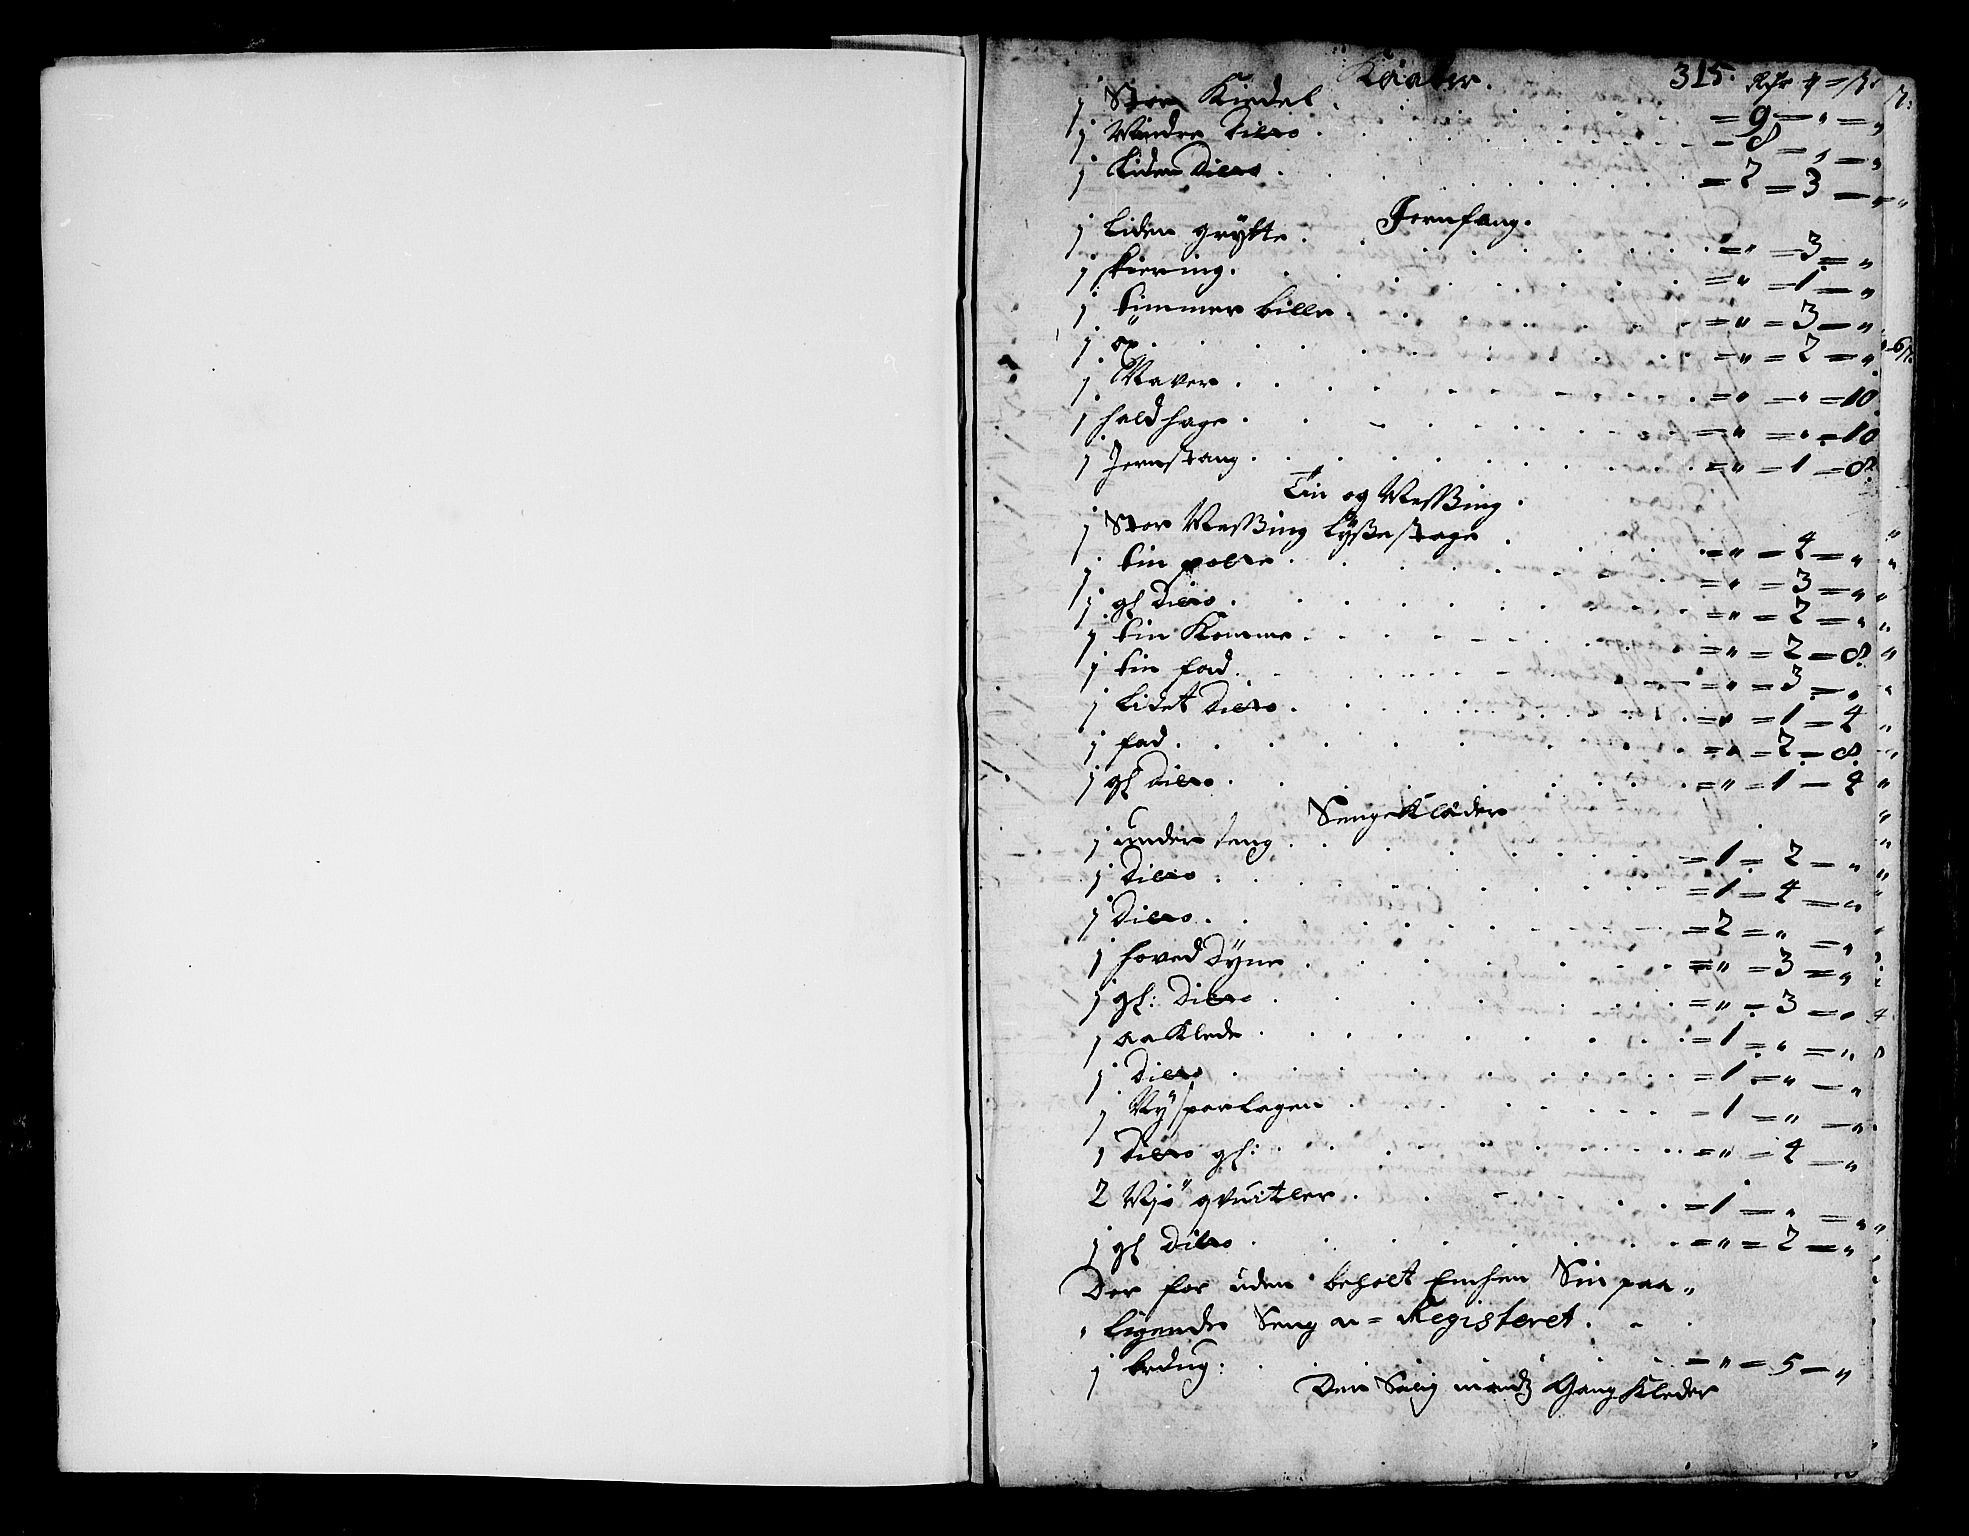 Kaaber. 315. Rdr # = ß.
1 Stor Kiedel . . . = 9 — " = "
1 Mindre Dito . . . = 8 — , — "
1 Liden Dito . . . = 2 = 3 — "
Jernfang.
1 Liden grytte . . . = " = 3 = "
1 skiering . . . = " = 1 — "
1 timmer bille . . . = " = 3 — "
1 øx . . . = " = 2 = "
1 Naver . . . = " — " = 10
1 hald hage . . . = " = " = 10
1 Jernstang . . . = " — 1 = 8
Tin og Messing.
1 Stor Messing Lyßestage . . . = " = 4 = "
1 tin potte . . . = " = 3 = "
1 gl Dito . . . = " = 2 = "
1 tin Komme . . . = " = 2 = 8
1 tin fad . . . = " = 3 = "
1 Lidet Dito . . . = " = 1 = 4
1 fad . . . = " = 2 = 8
1 gl Dito . . . = " = 1 — 4
Sengeklæder
1 under seng . . . = 1 = 2 = "
1 Dito . . . = 1 = 4 = "
1 Dito . . . = 2 = " = "
1 hoved Dyne . . . = " = 3 = "
1 gl: Dito . . . = " = 3 = "
1 aaklede . . . = 1 = " = "
1 Dito . . . = 1 = " — "
1 Ny sparlagen . . . = 1 = " = "
1 Dito gl: . . . = " = 4 — "
2 gvitler . . . = 1 — " = "
1 gl Dito . . . = " = 2 = "
Der for uden beholt Enchen Sin paa
ligende Seng u = Registeret.
1 . . . = " = 5 — "
Den Salig mands Gang Kleder